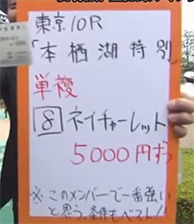 東京10R
「本栖湖特別」
単複
8 ネイチャーレット
5000円ずつ
※このメンバーで一番強い
と思う。条件もベスト!!